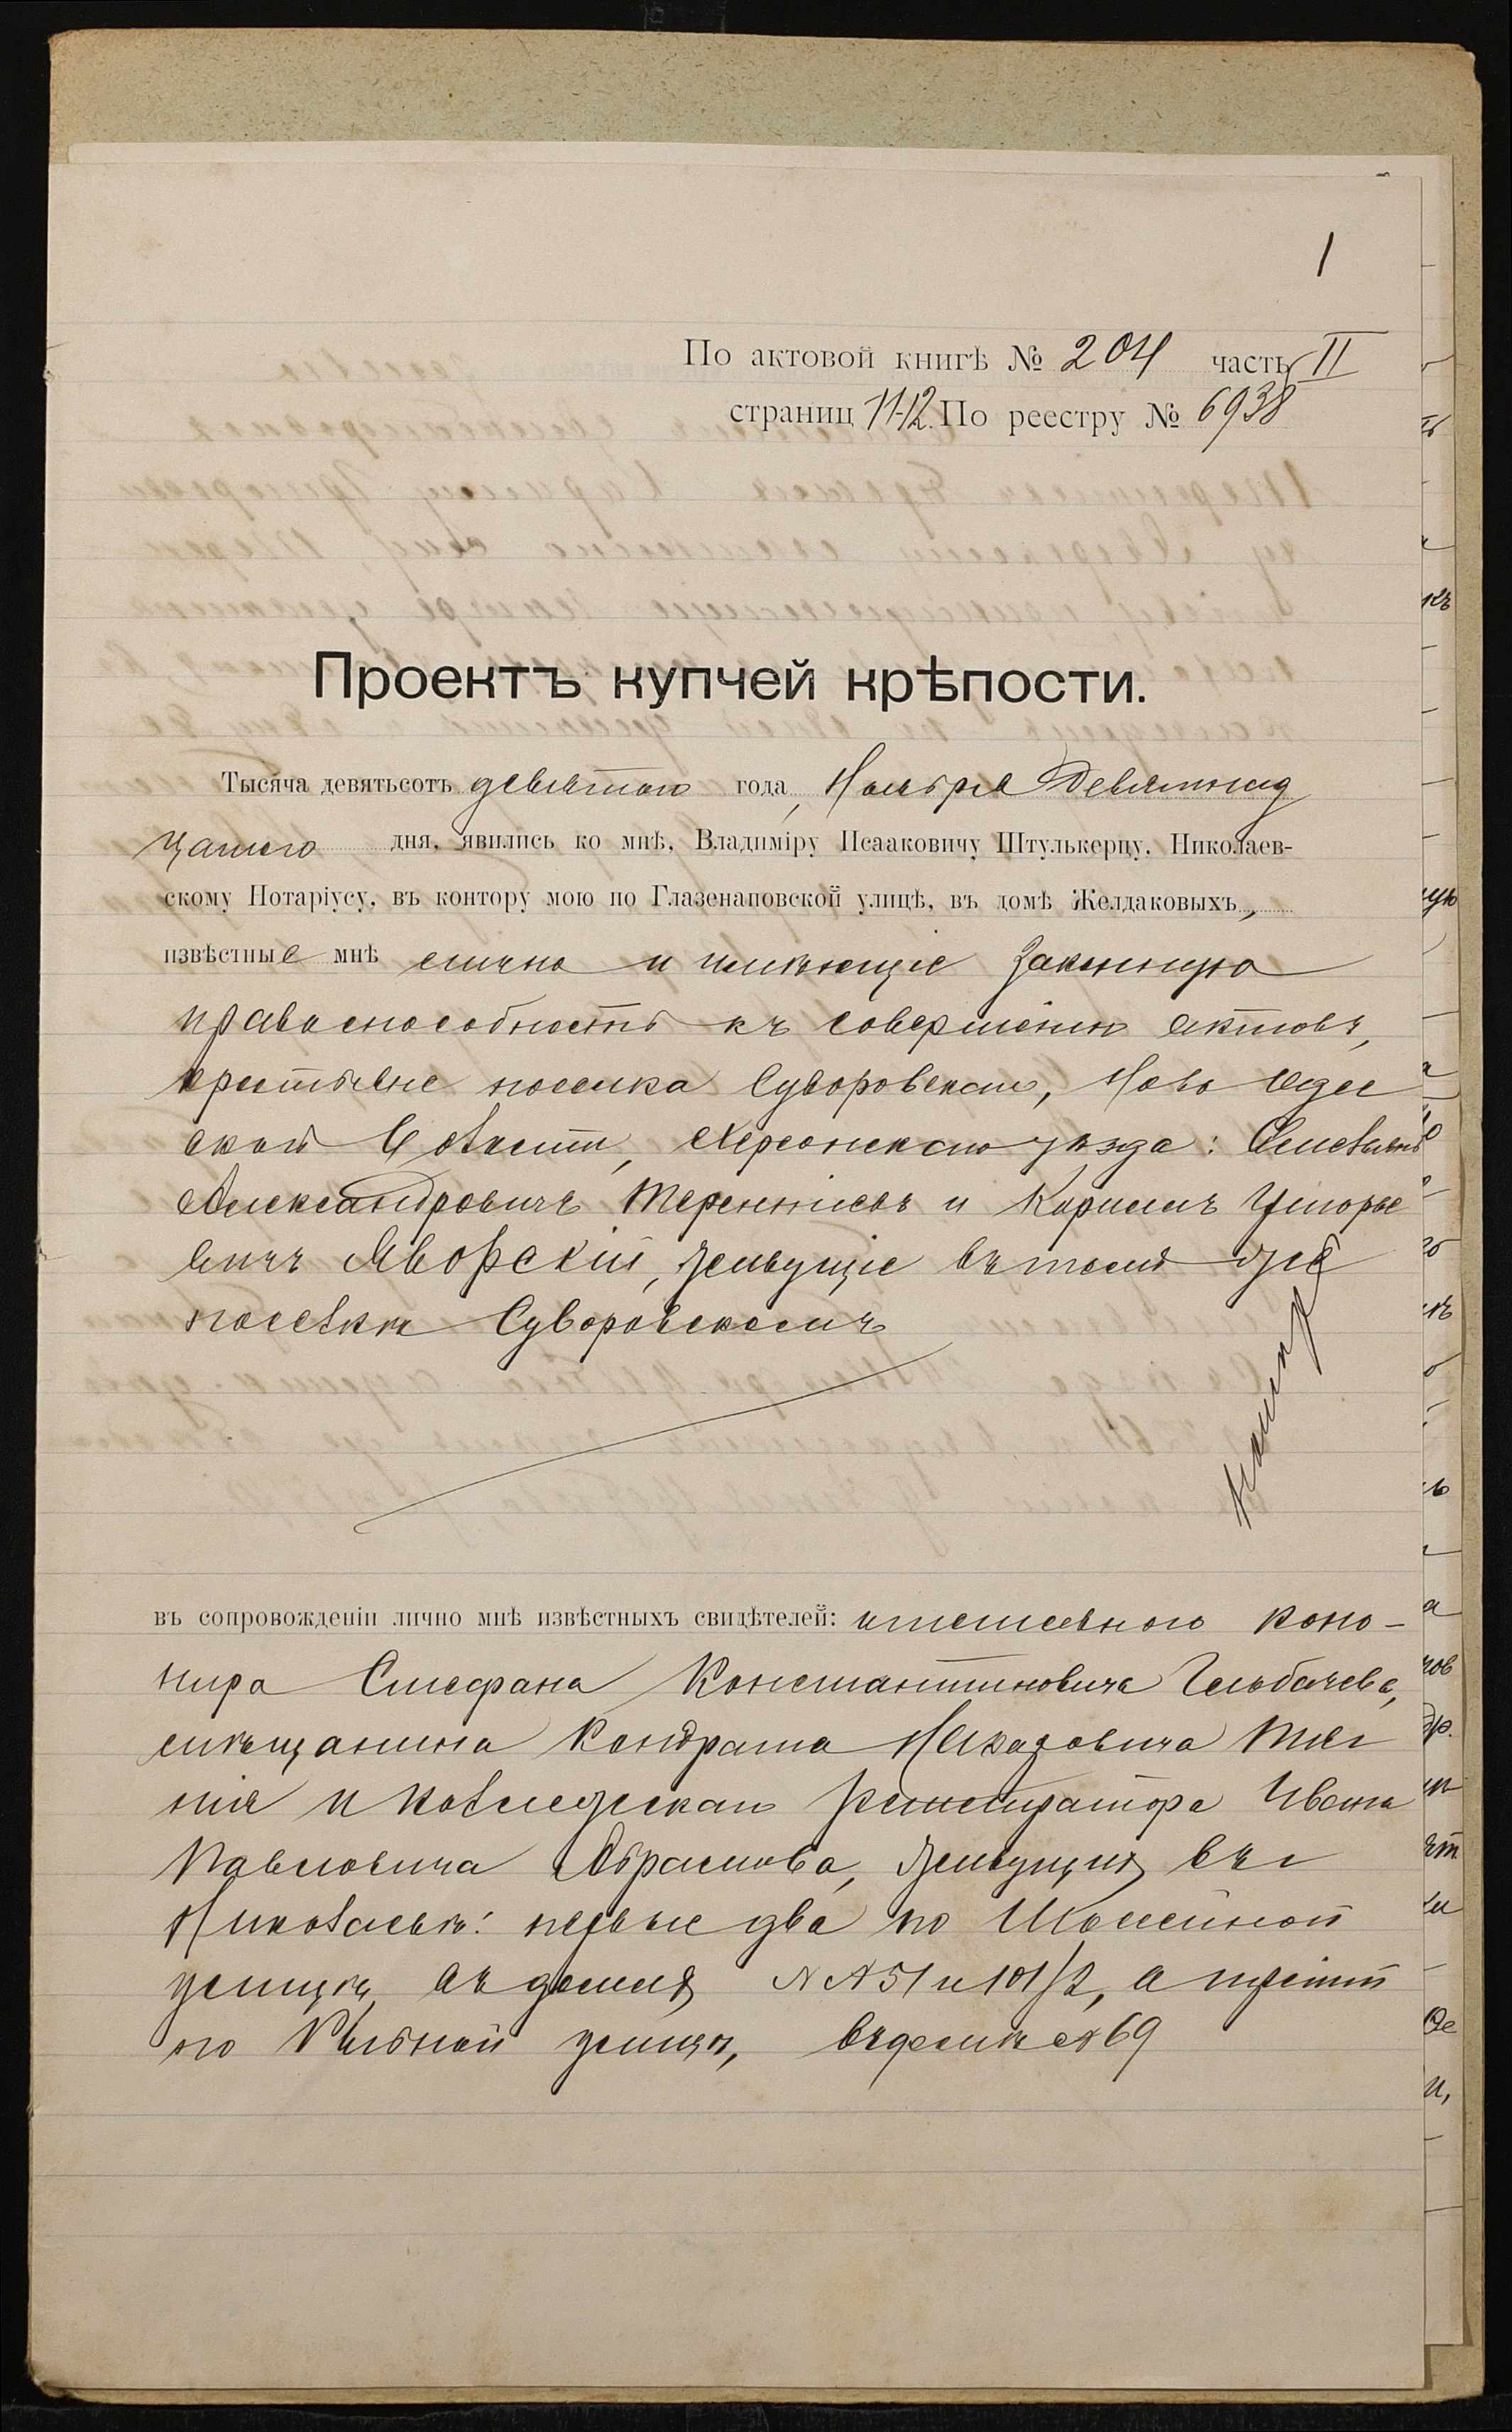 1
По актовой книгѣ № 204 часть II
страниц 11-12. По реестру № 6938
Проектъ купчей крѣпости.
Тысяча девятьсотъ девятаго года, Ноября девятнад
цатаго дня, явились ко мнѣ, Владиміру Исааковичу Штулькерцу, Николаев-
скому Нотаріусу, въ контору мою по Глазенаповской улицѣ, въ домѣ Желдаковыхъ,
извѣстные мнѣ лично и имѣющіе законную
правоспособность къ совершенію актовъ,
крестьяне поселка Суворовскаго, Ново Одес
ской волости, Херсонскаго уѣзда: Емельянъ
Александровичъ Терентьевъ и Кириллъ Григорье
вичъ Яворскій, живущіе въ томъ же
поселкѣ Суворовскомъ
въ сопровожденіи лично мнѣ извѣстныхъ свидѣтелей: отставного кано-
нира Стефана Константиновича
мѣщанина Кондрата
и коллежскаго регистратора Ивана
Павловича Абрамова, живущихъ въ г
Николаевѣ: первые два по
улицѣ, въ домахъ №№ 51 и 101/2, а третій
по улицѣ, въ домѣ № 69